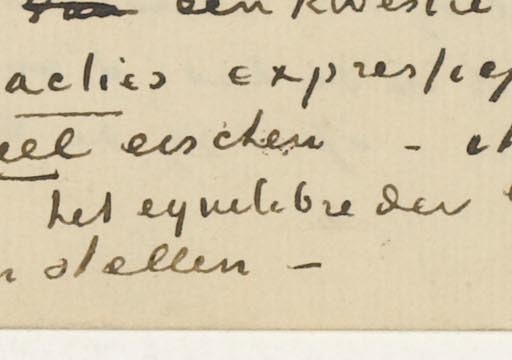 een kwestie
acties expres
eel eischen -
het equilibre der
n stellen -